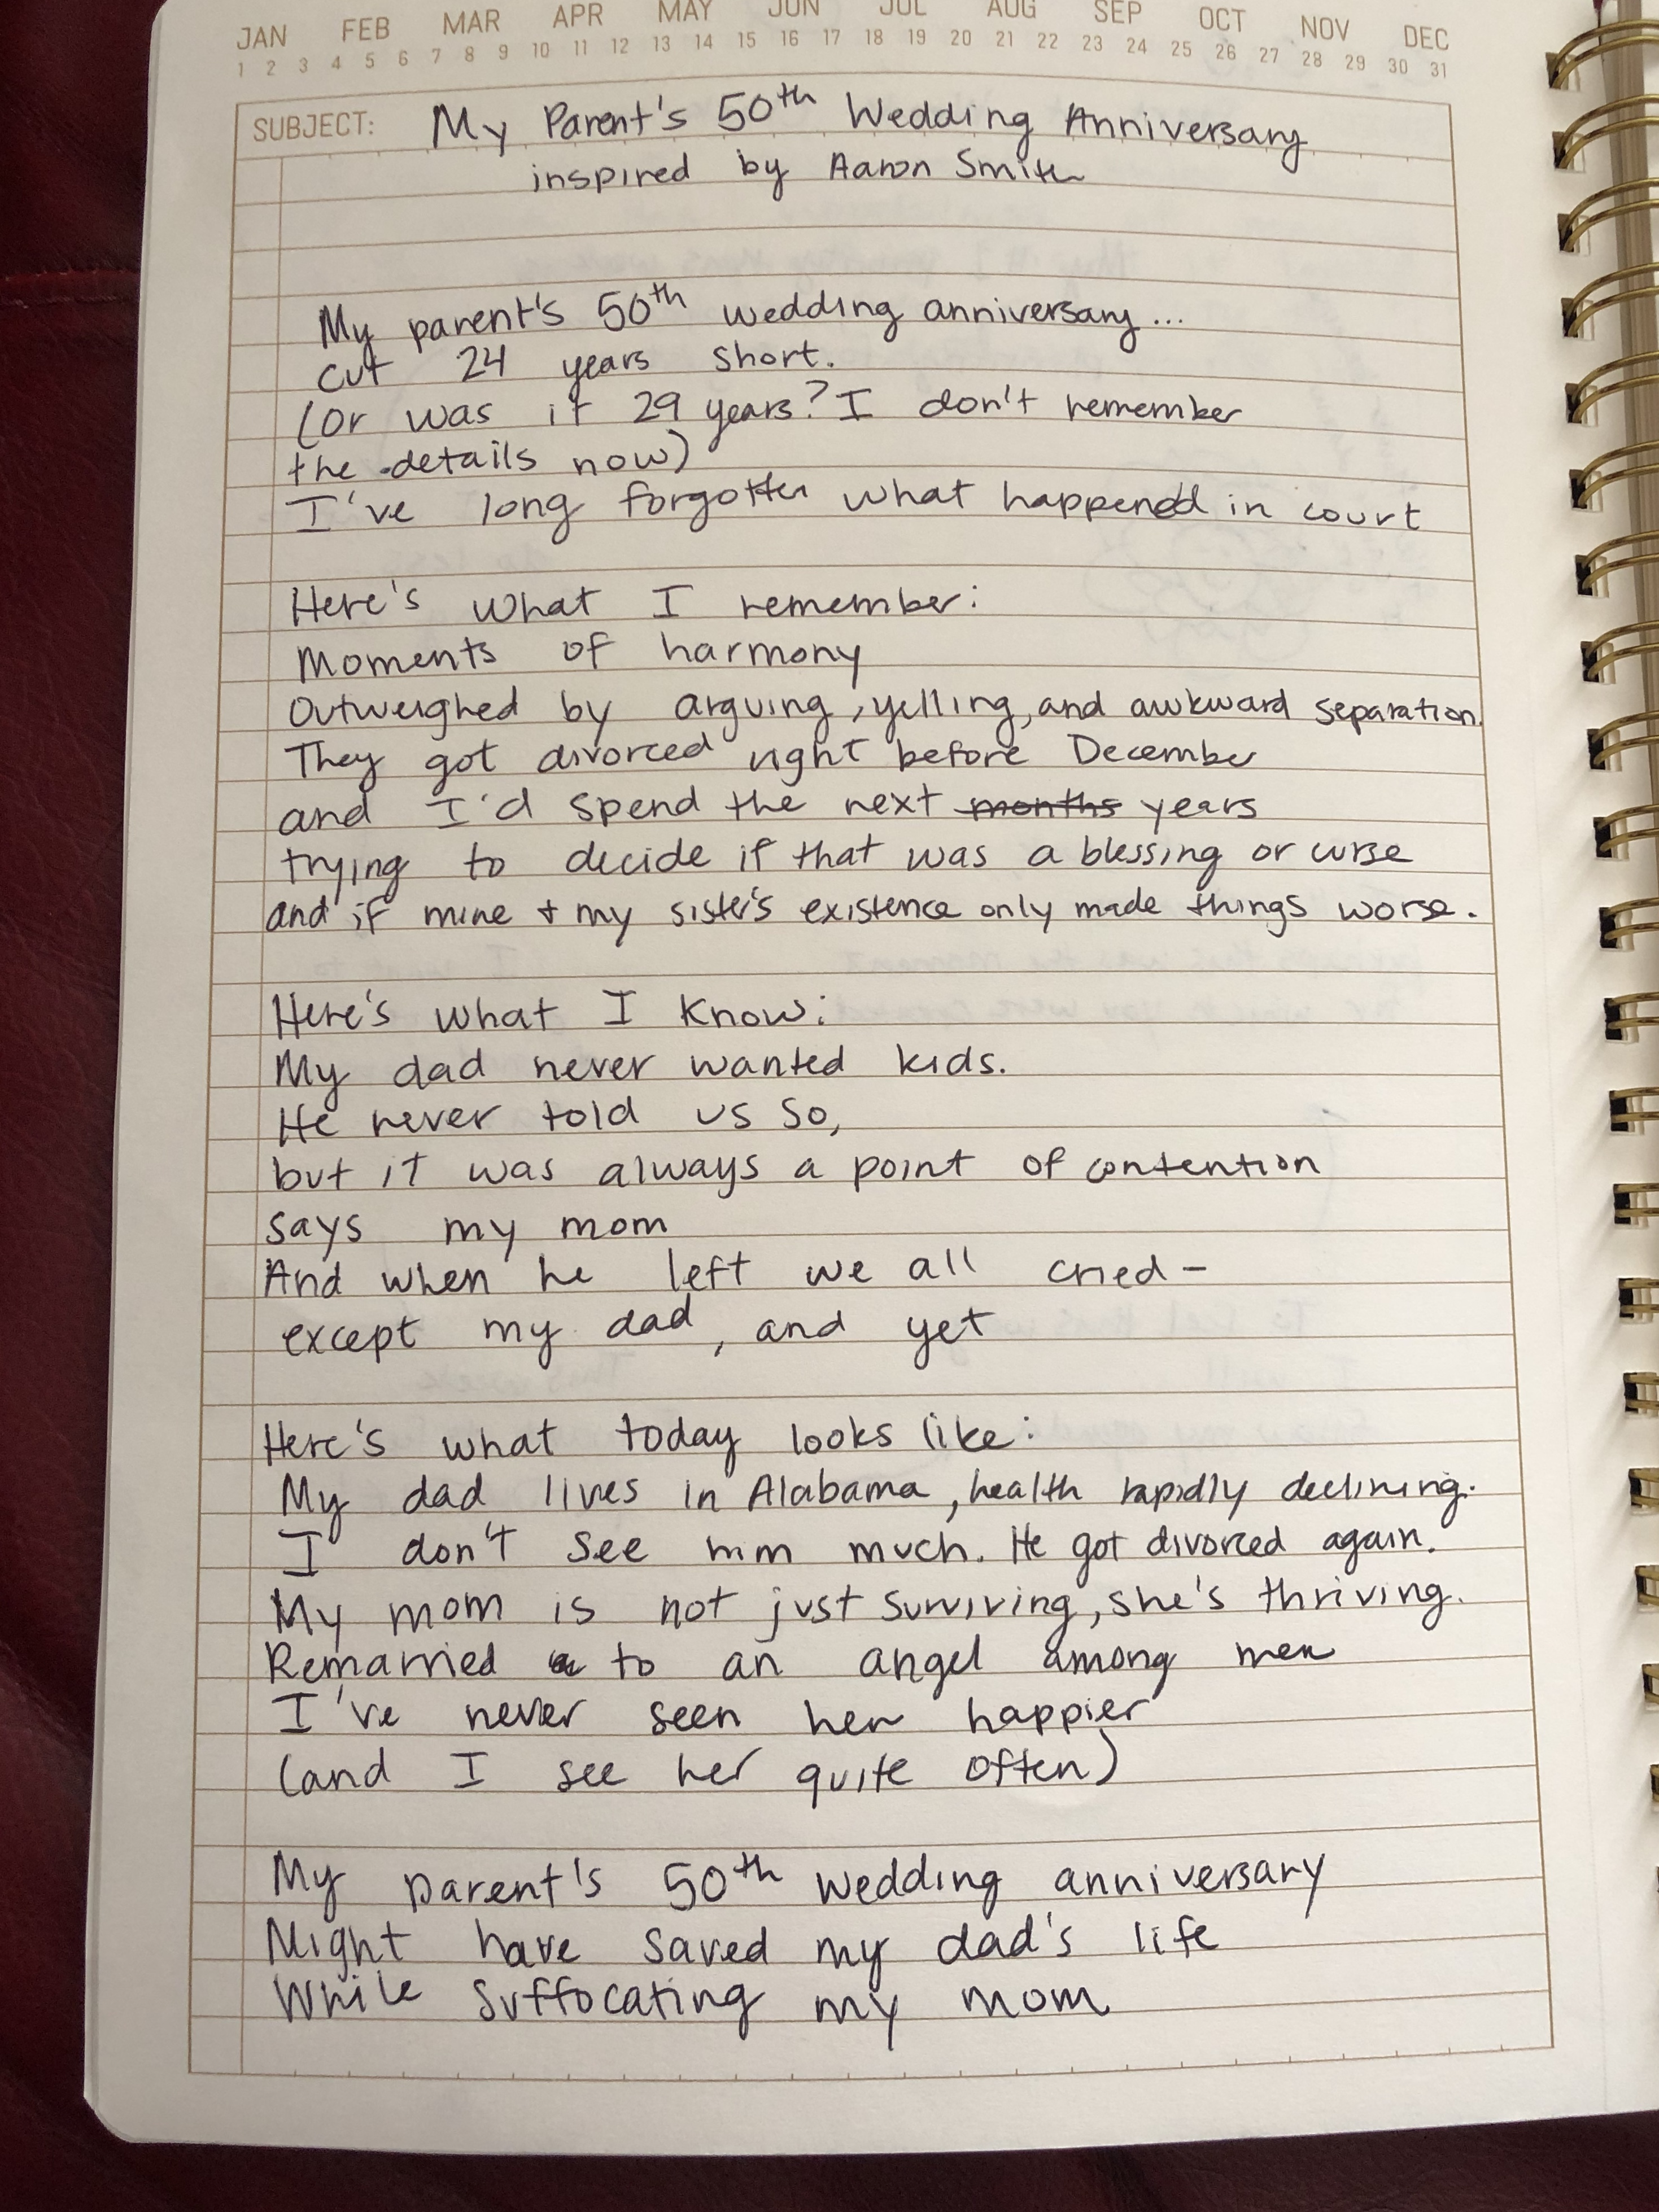 JAN FEB MAR APR MAY JUN JUL AUG SEP OCT NOV DEC
1 2 3 4 5 6 7 8 9 10 11 12 13 14 15 16 17 18 19 20 21 22 23 24 25 26 27 28 29 30 31
SUBJECT: My Parent's 50th Wedding Anniversary
inspired by Aaron Smith
My parent's 50th wedding anniversary...
cut 24 years short.
(Or was it 29 years? I don't remember
the details now)
I've long forgotten what happened in court
Here's what I remember:
Moments of harmony
Outweighed by arguing, yelling, and awkward separation.
They got divorced right before December
and I'd spend the next months years
trying to decide if that was a blessing or curse
and if mine + my sister's existence only made things worse.
Here's what I know:
My dad never wanted kids.
He never told us so,
but it was always a point of contention
says my mom
And when he left we all cried-
except my dad, and yet
Here's what today looks like:
My dad lives in Alabama, health rapidly declining.
I don't see him much. He got divorced again.
My mom is not just surviving, she's thriving.
Remarried to an angel among men
I've never seen her happier
(and I see her quite often)
My parent's 50th wedding anniversary
Might have saved my dad's life
While suffocating my mom